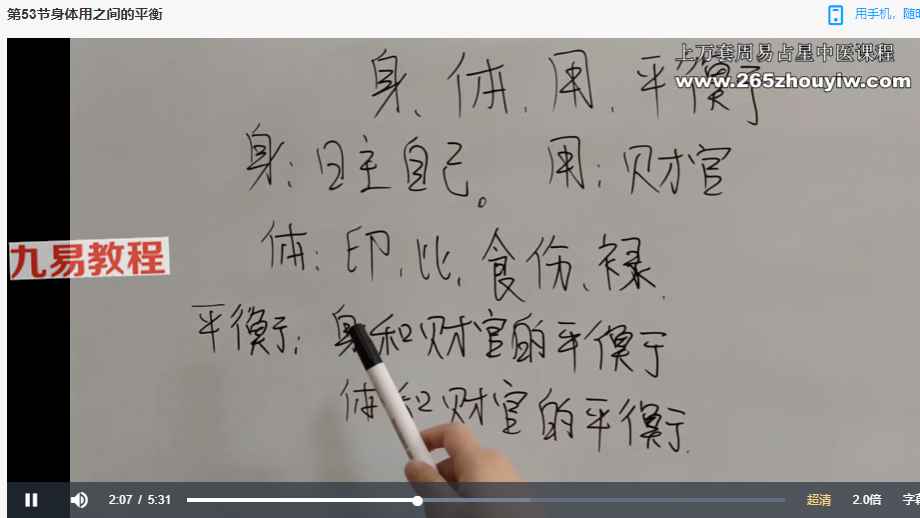 第53节身体用之间的平衡
用手机，随时
上万套周易占星中医课程
www.265zhouyiw.com
身、体、用、平衡
身：日主自己。 用：财官
体：印、比、食伤、禄.
九易教程
平衡：身和财官的平衡
体和财官的平衡.
2:07 / 5:31
超清
2.0倍
字幕